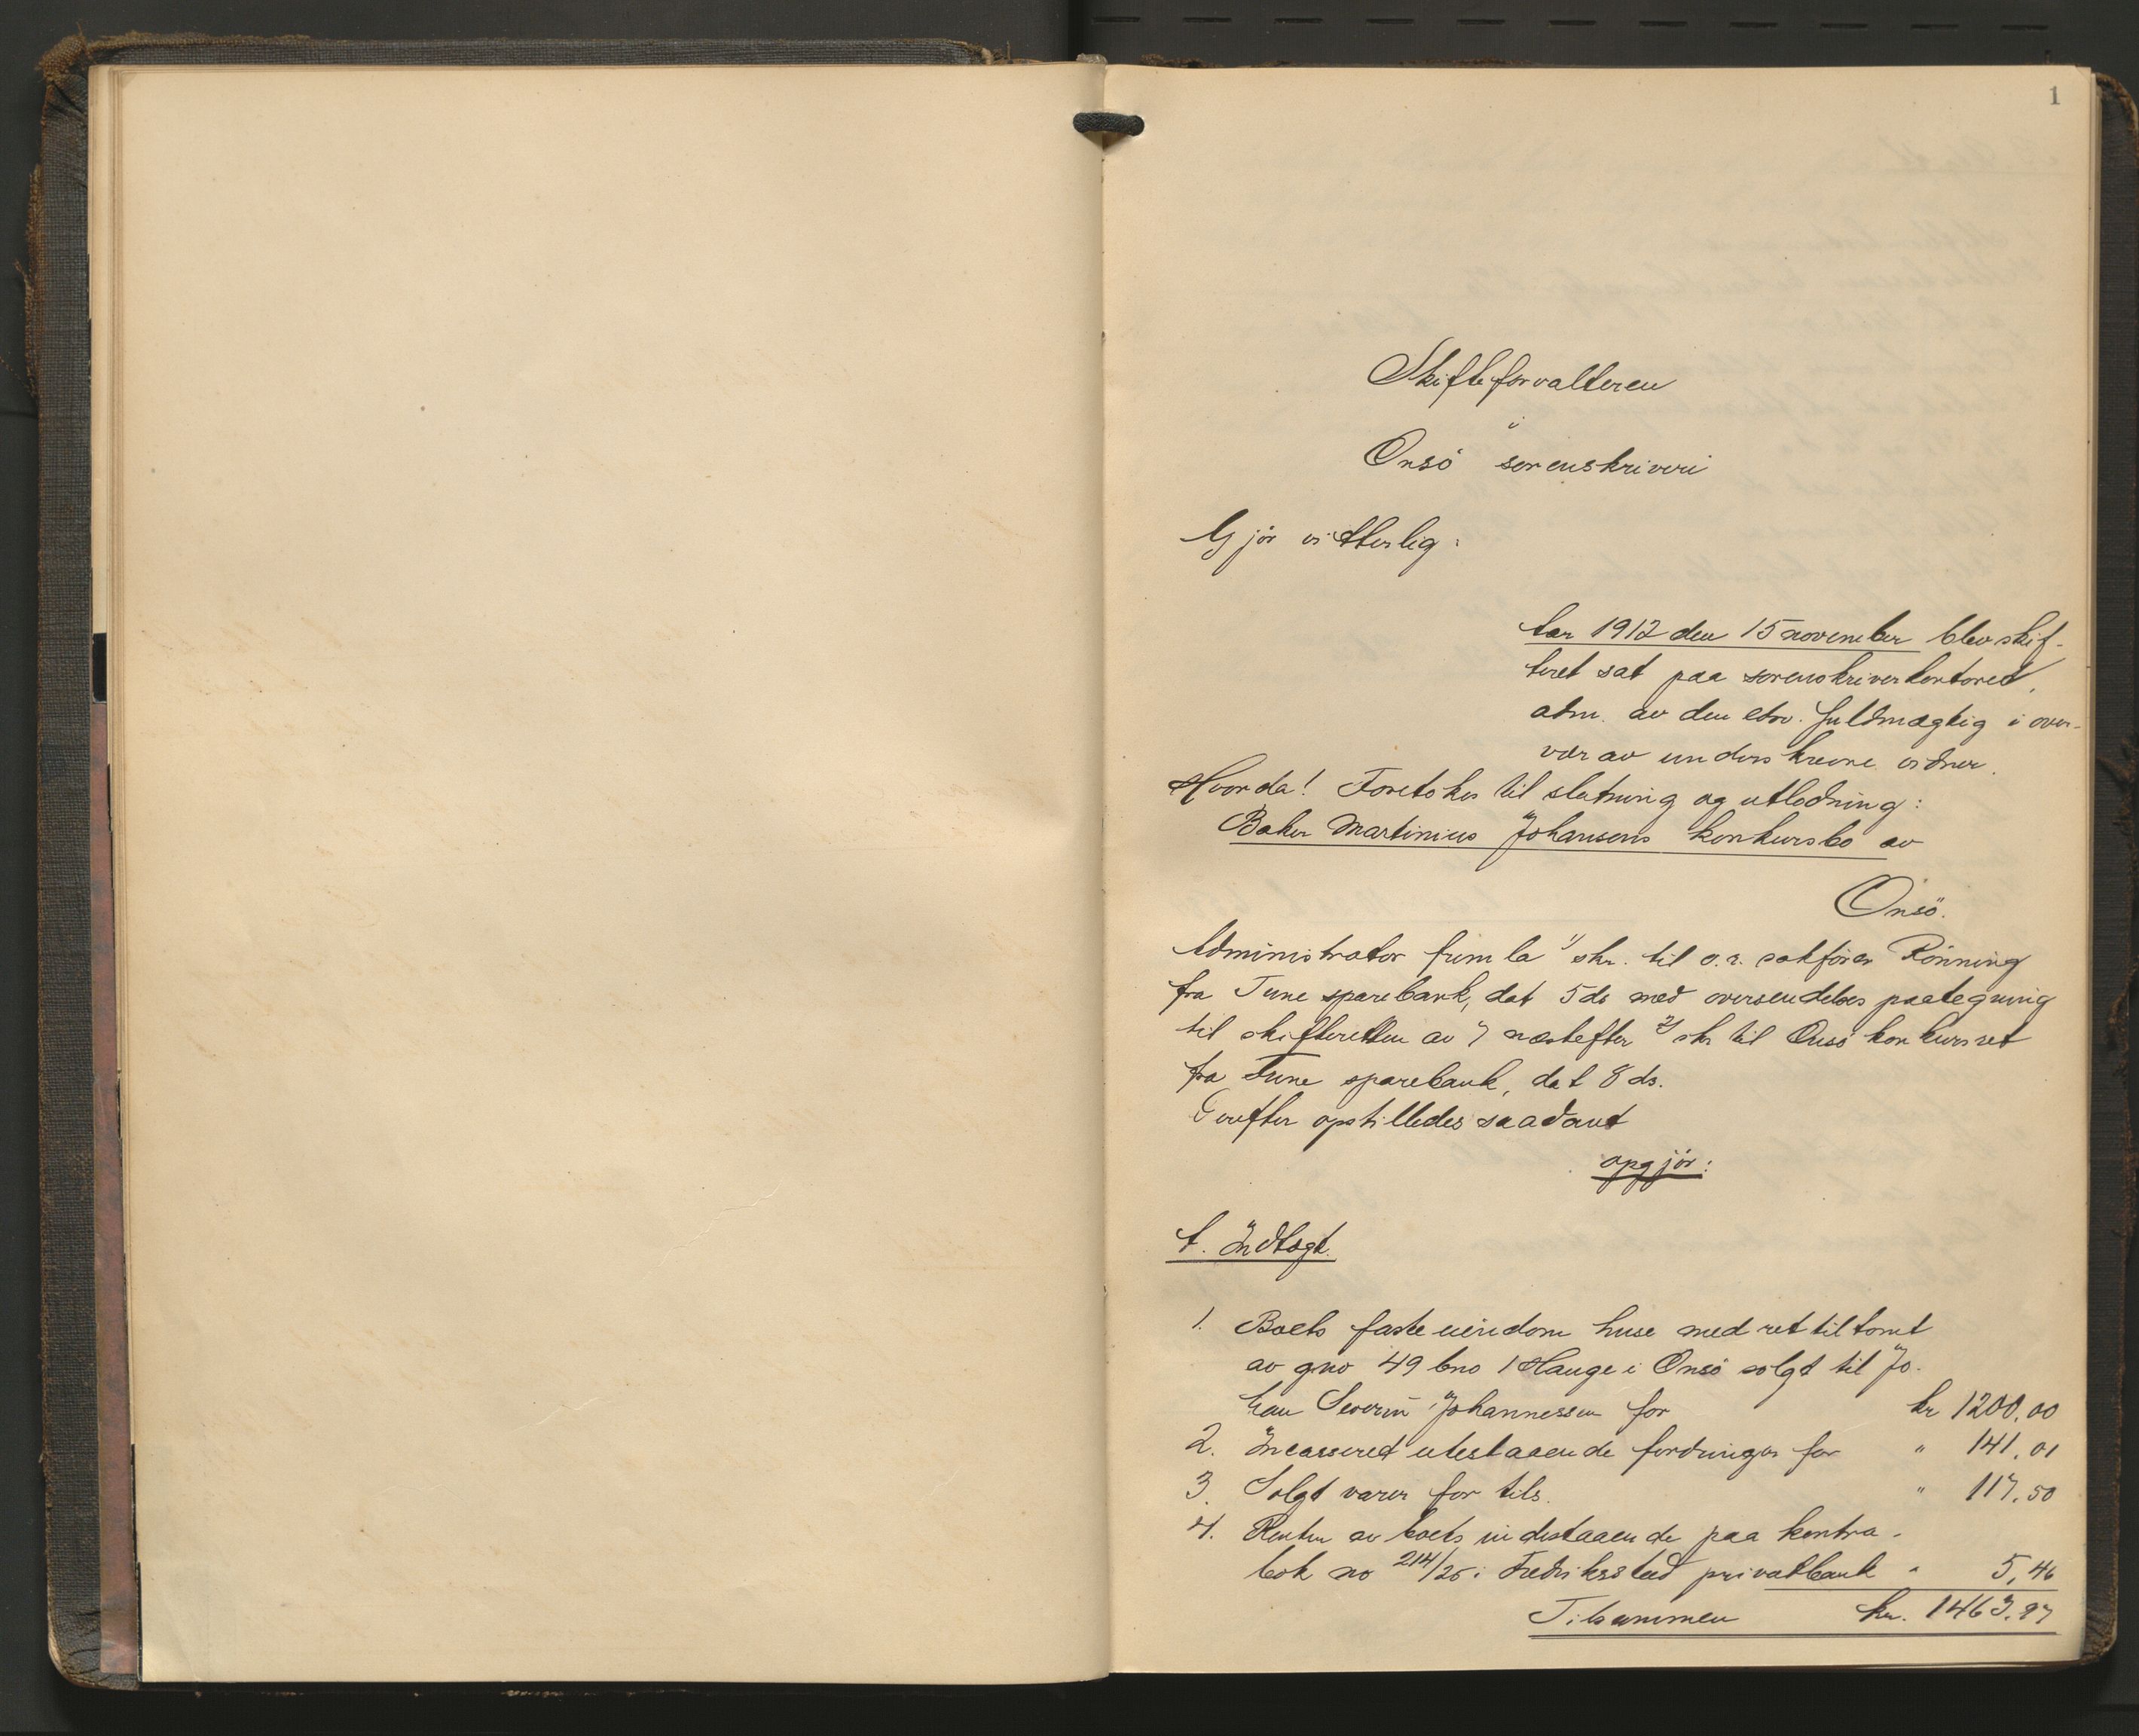 1
Skifteforvalteren
i
Onsö sorenskriveri
Gjör vitterlig:
Aar 1912 den 15 november blev skif-
teret sat paa sorenskriverkontoret,
adm. av den edsv. fuldmægtig i over-
vær av underskrevne vidner.
Hvorda! Foretokes til slutning og utlodning:
Baker Martinius Johansens konkursbo av
Onsö.
Administrator fremla 1/ skr. til o.r. sakförer Rönning
fra Tune sparebank, dat 5 ds med oversendelses paategning
til skifteretten av 7 næstefter 2/ skr til Onsö konkursret
fra Tune sparebank, dat 8 ds.
Derefter opstilledes saadant
opgjör:
A. Indtægt.
1. Boets faste eiendom huse med ret til tomt
av gno 49 bno 1 Hauge i Onsö solgt til Jo-
han Severin Johannessen for kr 1200.00
2. Incassered utestaaende fordringer for " 141.01
3. Solgt varer for tils. " 117.50
4. Renter av boets indestaaende paa kontra-
bok no 214/25 i Fredriksstad privatbank " 5,46
Tilsammen kr. 1463.97